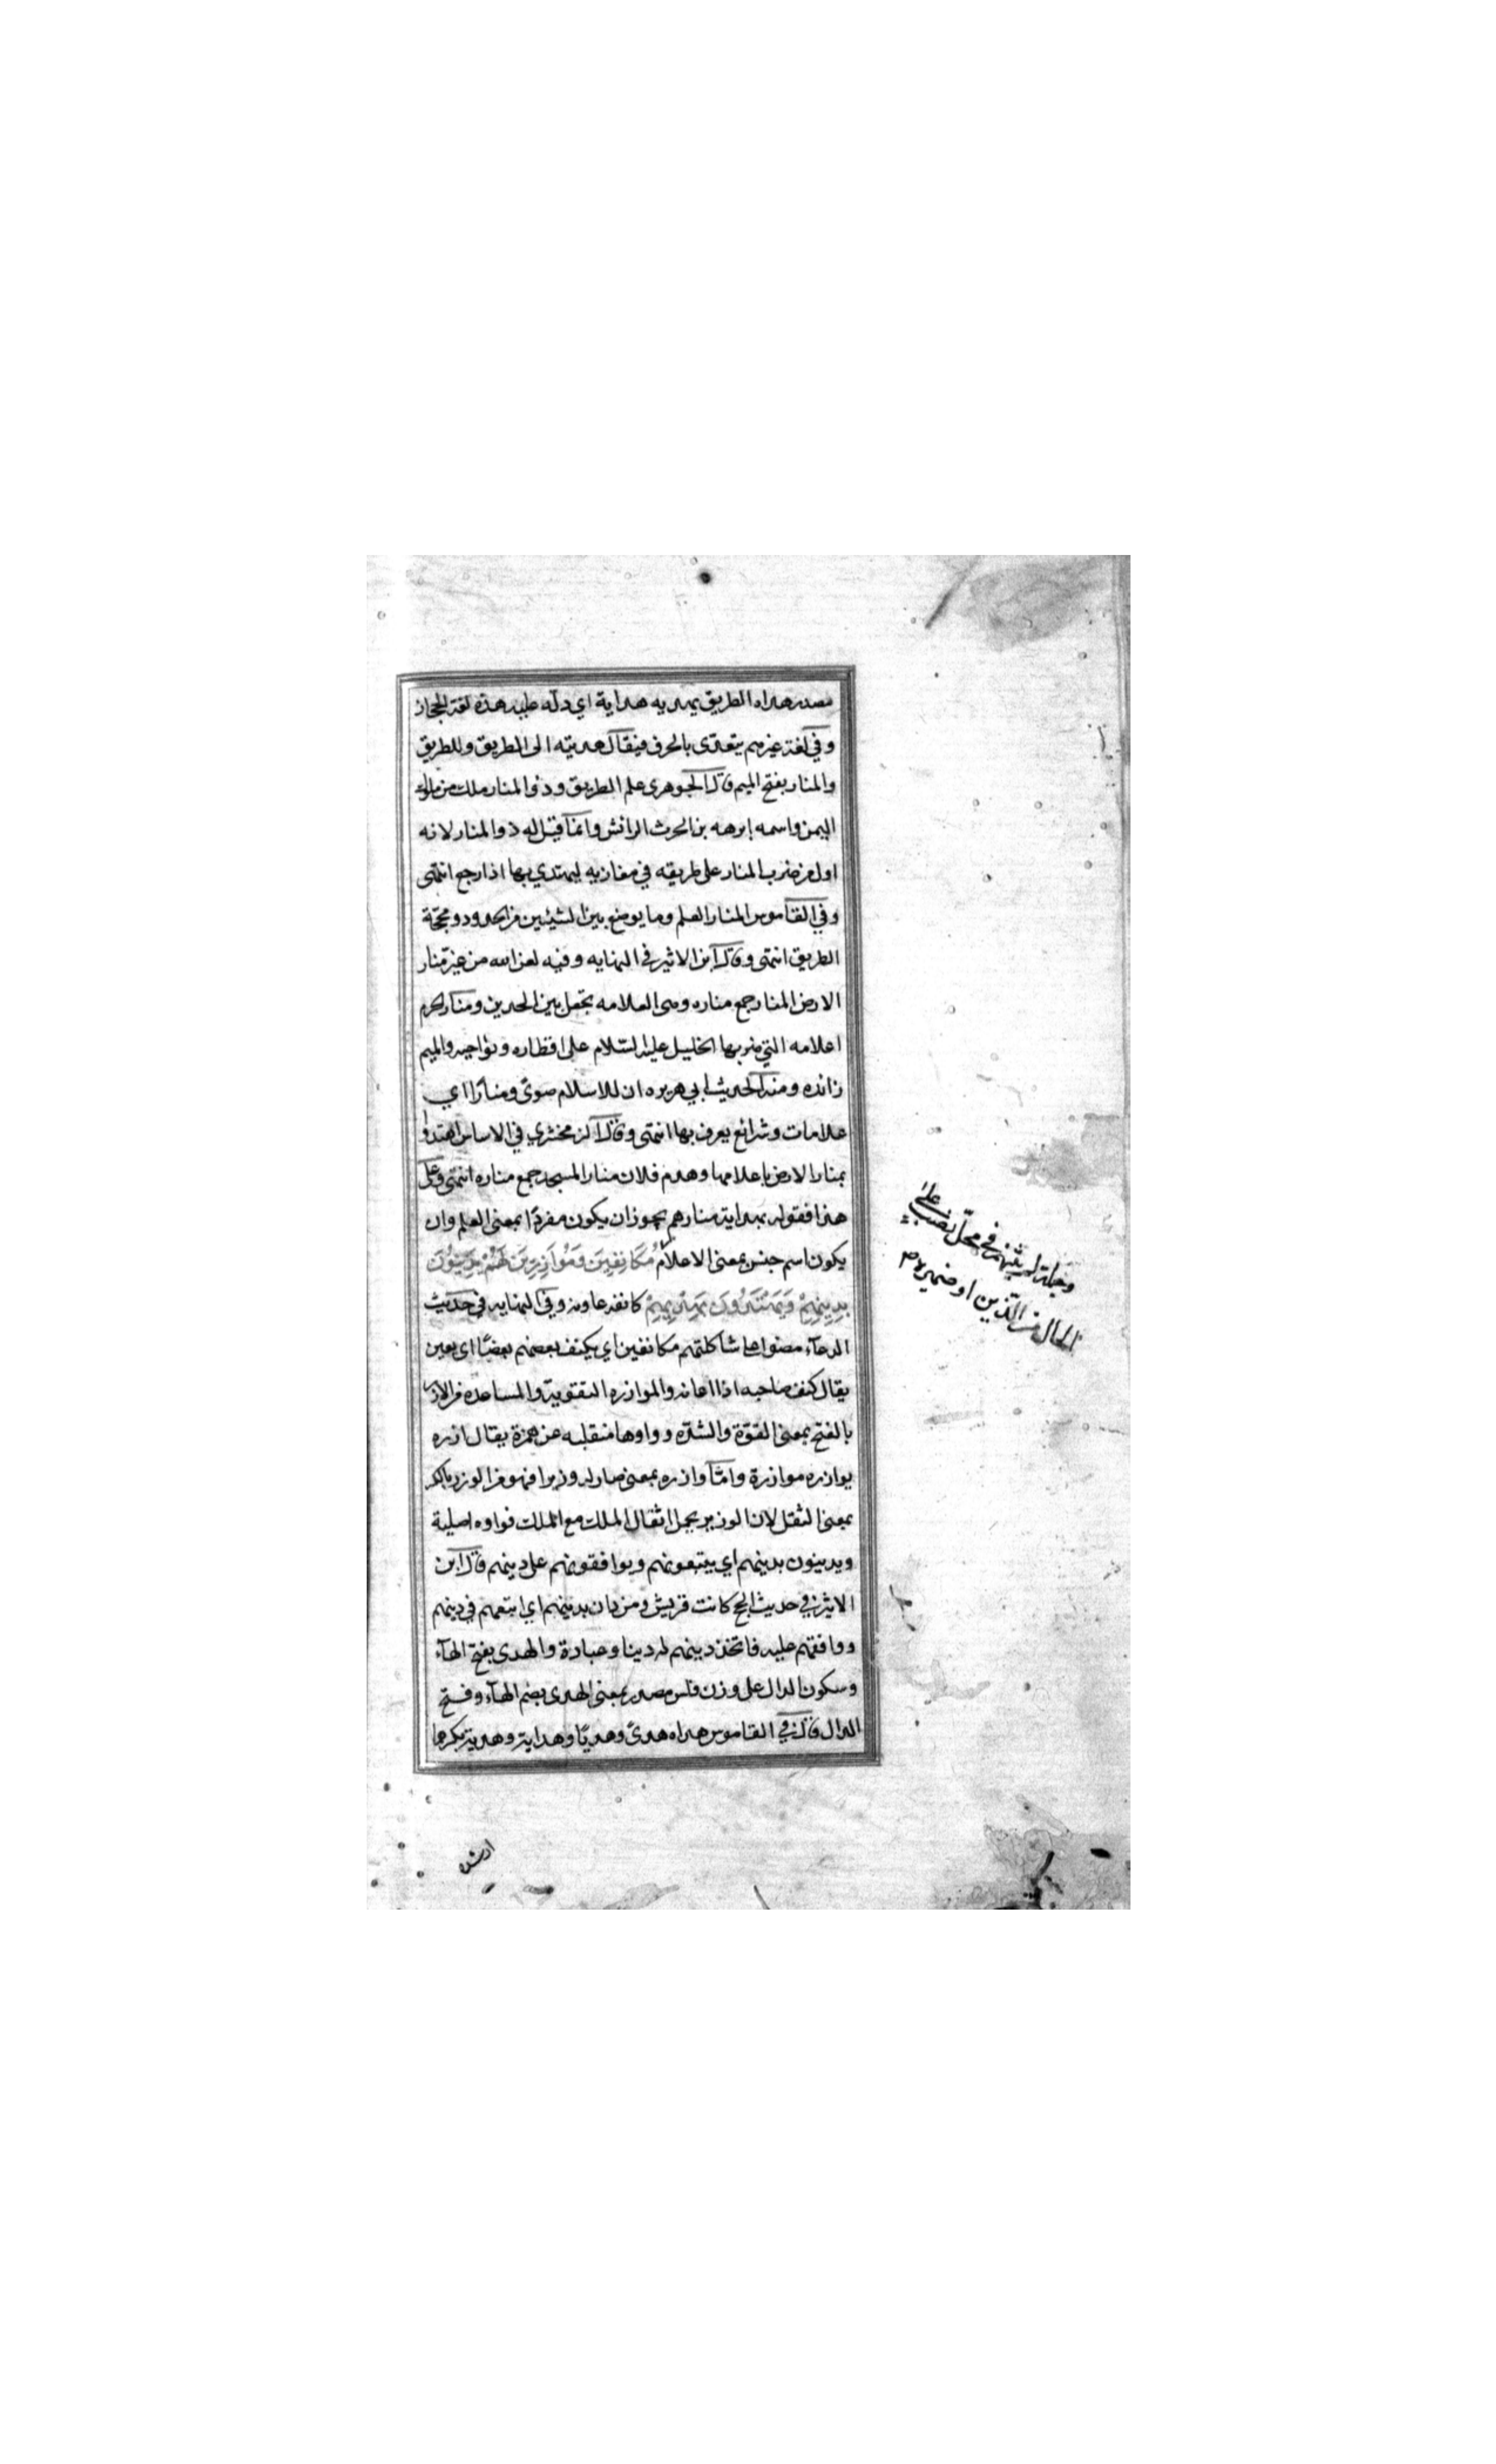 مصدر هداه الطريق يهديه هداية اي دله عليه هذه لغة الحجاز
وفي لغة غيرهم يتعدى بالحرف فيقال هديته الى الطريق وللطريق
والمنار بفتح الميم قال الجوهري علم الطريق وذو المنار ملك من ملوك
اليمن واسمه ابرهه بن الحرث الرائش وانما قيل له ذو المنار لانه
اول من ضرب المنار على طريقه في مغازيه ليهتدي بها اذا رجع انتهى
وفي القاموس المنار العلم وما يوضع بين الشيئين من الحدود ومحجة
الطريق انتهى وقال ابن الاثير في النهايه وفيه لعن الله من غير منار
الارض المنار جمع مناره وهى العلامه تجعل بين الحدين ومنار الحرم
اعلامه التي ضربها الخليل عليه السلام على اقطاره ونواحيه والميم
زائده ومنه الحديث ابي هريره ان للاسلام صوىً ومنارًا اي
علامات وشرائع يعرف بها انتهى وقال الزمخشري في الاساس اهتدوا
بمنار الارض باعلامها وهدم فلان منار المسجد جمع مناره انتهى وعلى
هذا فقوله بهداية منارهم يجوز ان يكون مفردًا بمعنى العلم وان
يكون اسم جنس بمعنى الاعلام مُكَانِفِينَ وَمُوَازِرِينَ لَهُمْ يَدِينُونَ
بِدِينِهِمْ وَيَهْتَدُونَ بِهَدْيِهِمْ كانفه عاونه وفي النهايه في حديث
الدعاء مضوا على شاكلتهم مكانفين اي يكنف بعضهم بعضًا اى يعين
يقال كنف صاحبه اذا اعانه والموازره التقوية والمساعده من الازر
بالفتح بمعنى القوّة والشدّه وواوها منقلبه عن همزة يقال ازره
يوازره موازرة وامّا وازره بمعنى صار له وزيرا فهو من الوزر بالكسر
بمعنى الثقل لان الوزير يحمل اثقال الملك مع الملك فواوه اصلية
ويدينون بدينهم اي يتبعونهم ويوافقونهم على دينهم قال ابن
الاثير في حديث الحج كانت قريش ومن دان بدينهم اي اتبعهم في دينهم
ووافقهم عليه فاتخذ دينهم له دينا وعبادة والهدى بفتح الهآء
وسكون الدال على وزن فلس مصدر بمعنى الهدى بضم الهآء وفتح
الدال قال في القاموس هداه هدىً وهديًا وهداية وهدية بكسرهما
وجملة لم يثنهم في محلّ نصب على
الحال من الّذين او ضميرهم
ارشده